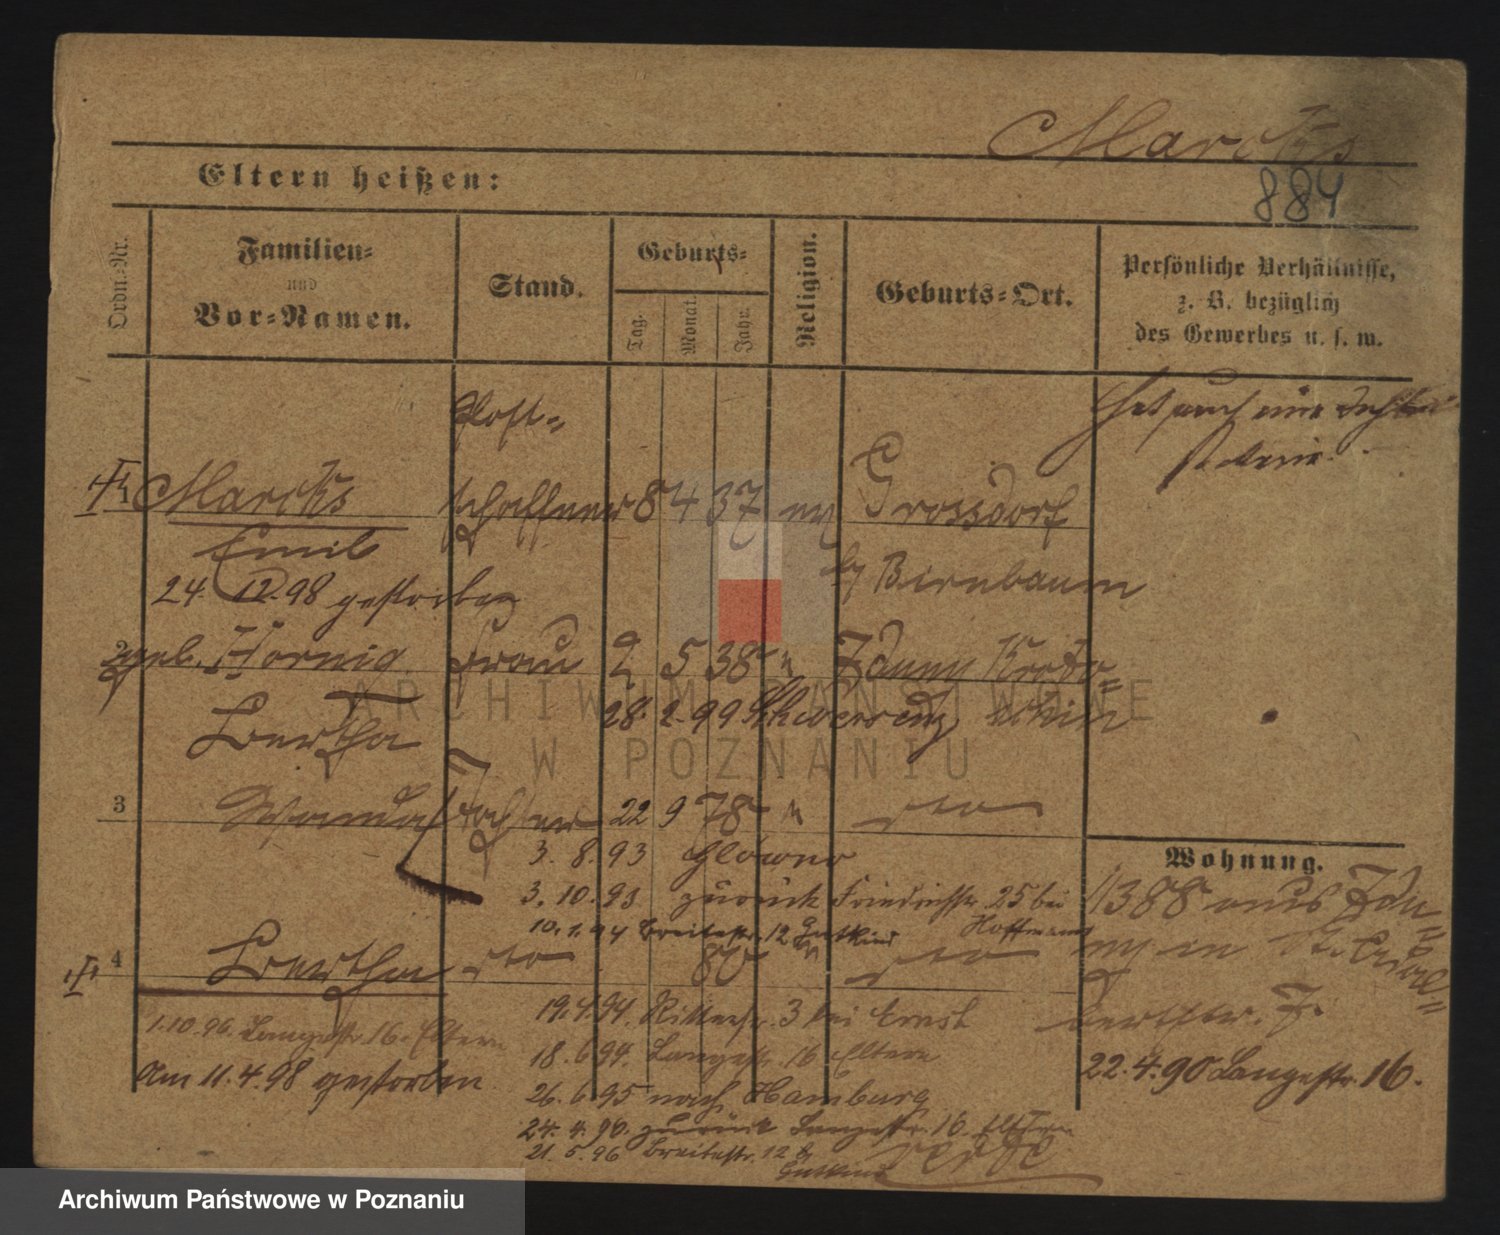 Marcks
884
Eltern heißen:
Ordn.-Nr.
Familien-
und
Vor-Namen.
Stand.
Geburts-
Tag.
Monat.
Jahr.
Religion.
Geburts-Ort.
Persönliche Verhältnisse,
z. B. bezüglich
des Gewerbes u. s. w.
Hat auch eine Tochter
Post-
1 Marcks schaffner 8 4 37 ev Grossdorf
Emil
b/ Birnbaum
24. 12. 98 gestorben
2 geb. Hornig Frau 2 5 38 " Zduny Kroto-
Bertha 28. 2. 99 schin
3 Wanda Tochter 22 9 78 " dto
3. 8. 93 Glowno
3. 10. 93 zurück Friedrichstr. 25 bei
Hoffmann
10. 1. 94 Breitestr. 12 b Gutkind
4 Bertha dto 80 " dto
19. 4. 94. Ritterstr. 3 bei Ernst
1. 10. 96. Langestr. 16. Eltern
18. 6 94. Langestr. 16 Eltern
Am 11. 4. 98 gestorben
26. 6. 95 nach Hamburg
24. 4. 96. zurück Langestr. 16 Eltern
21. 5. 96 Breitestr. 12 b
Gutkind
Wohnung.
1388 aus Zdu-
ny in
22. 4. 90 Langestr. 16.
ARCHIWUM PAŃSTWOWE
W POZNANIU
Archiwum Państwowe w Poznaniu